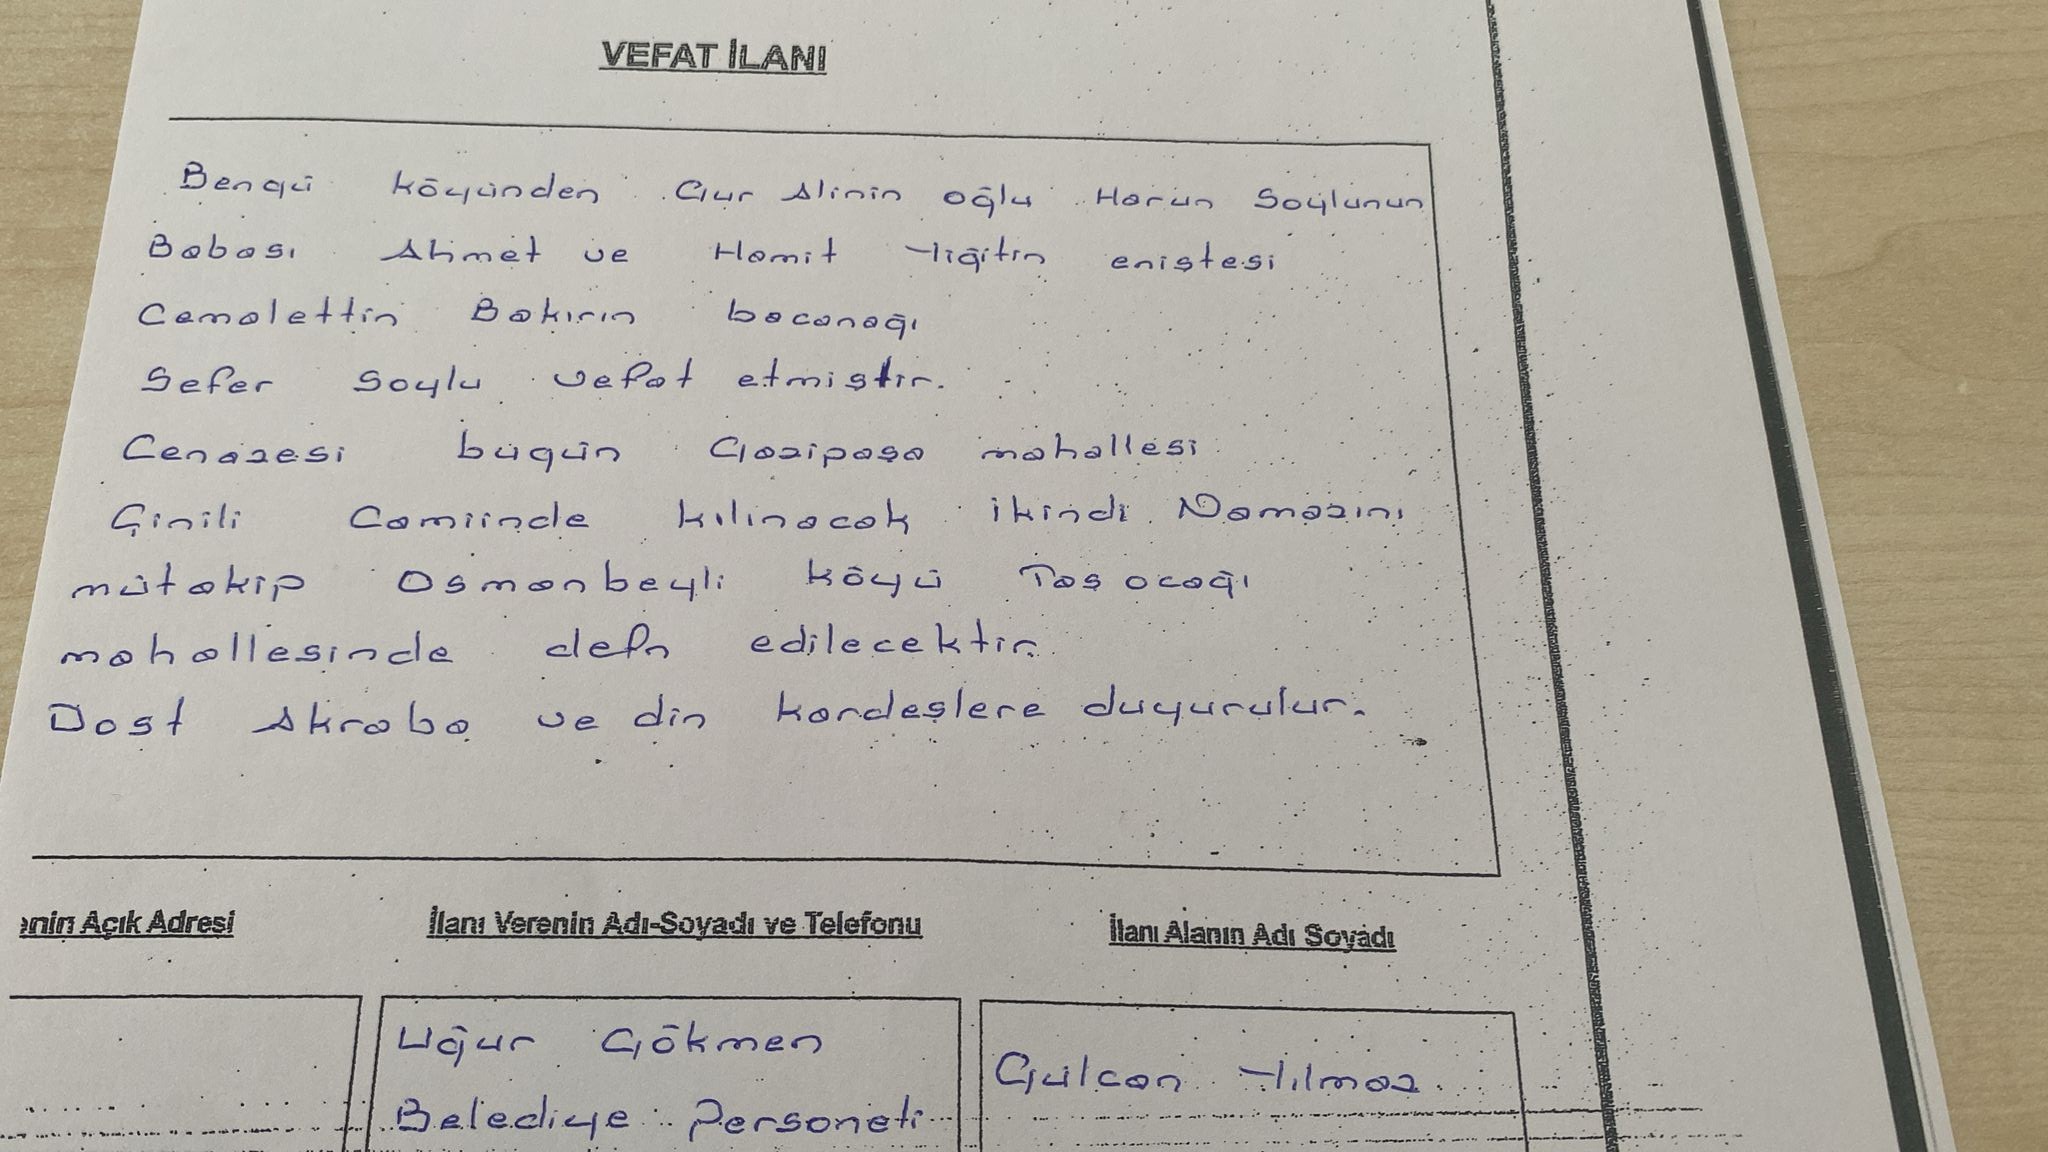 VEFAT İLANI
Bengü köyünden Gur Alinin oğlu Harun Soylunun
Babası Ahmet ve Hamit Yiğitin eniştesi
Cemalettin Bakırın bacanağı
Sefer Soylu vefat etmiştir.
Cenazesi bugün Gazipaşa mahallesi
Çinili Camiinde kılınacak ikindi Namazını
mütakip Osmanbeyli köyü Taş ocağı
mahallesinde defn edilecektir.
Dost Akraba ve din kardeşlere duyurulur.
enin Açık Adresi
İlanı Verenin Adı-Soyadı ve Telefonu
İlanı Alanın Adı Soyadı
Uğur Gökmen
Belediye Personeli
Gülcan Yılmaz